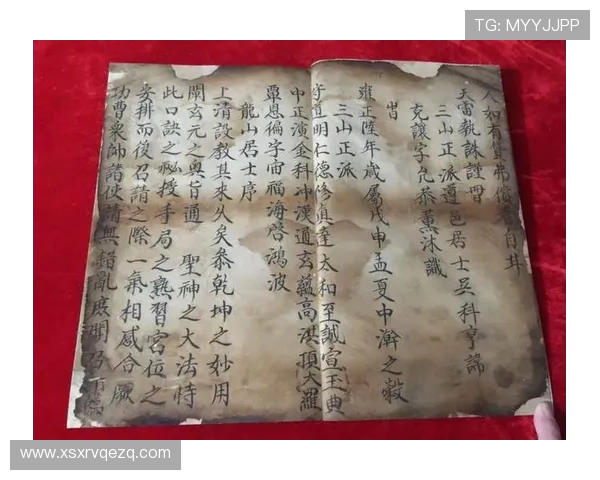 TG: MYYJJPP
人如有負弗償者自
天雷執誅謹冊
三山正派遵邑居士吳科亨謌
克讓字允恭薰沐識
旹
雍正陸年歲屬戊申孟夏中澣之穀
三山正派
守道明仁德修真達太和至誠宣玉典
中正演金科冲漢通玄蘊高洪頂大羅
覃恩徧宇宙福海啓鴻波
龍山居士序
上清設教其來久矣叅乾坤之妙用
關玄元之奧旨通 聖神之大法恃
此口訣之祕授手局之熟習宮位之
安排而後召請之際一氣相感合厥
功曹衆師請使請無錯亂庶
www.xsxrvqezq.com